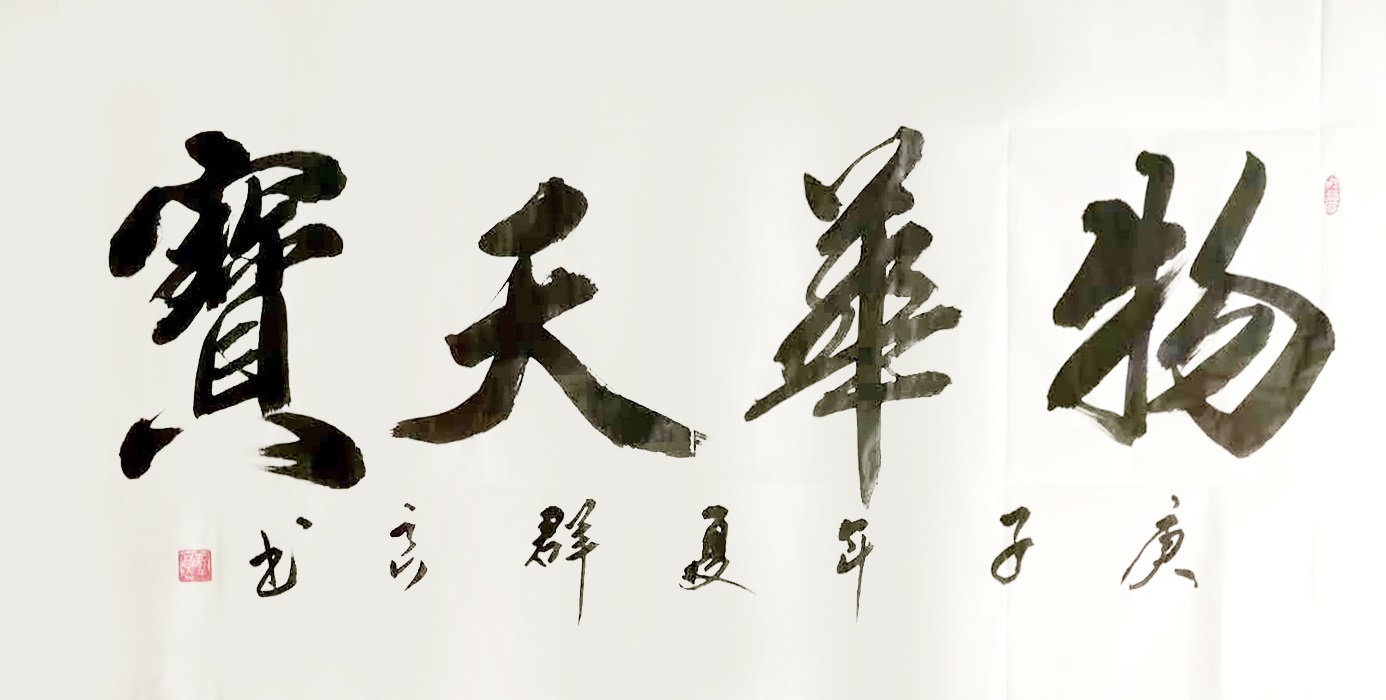 物華天寶
庚子年夏群书